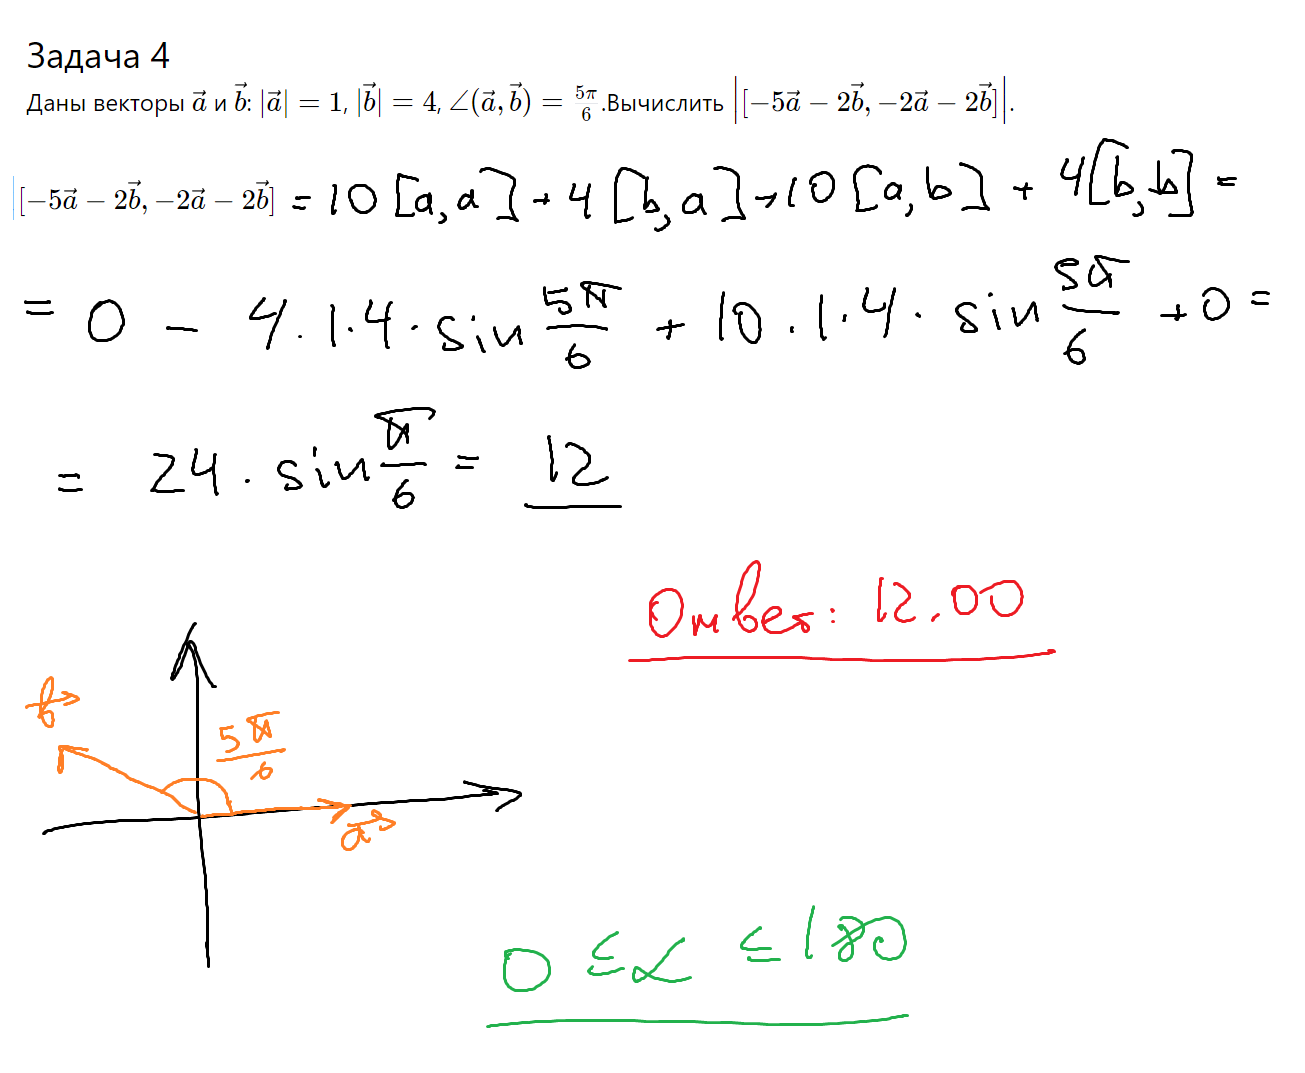 Задача 4
Даны векторы a⃗ и b⃗: |a⃗| = 1, |b⃗| = 4, ∠(a⃗, b⃗) = 5π/6.Вычислить |[−5a⃗ − 2b⃗, −2a⃗ − 2b⃗]|.
[−5a⃗ − 2b⃗, −2a⃗ − 2b⃗] = 10 [a, a] + 4 [b, a] + 10 [a, b] + 4 [b, b] =
= 0 − 4 · 1 · 4 · sin 5π/6 + 10 · 1 · 4 · sin 5π/6 + 0 =
= 24 · sin π/6 = 12
Ответ: 12.00
b⃗
5π/6
a⃗
0 ≤ α ≤ 180